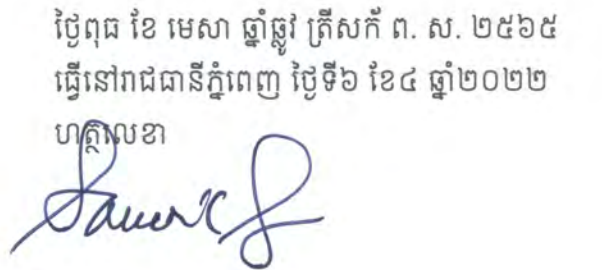 ថ្ងៃពុធ ខែ មេសា ឆ្នាំឆ្លូវ ត្រីស័ក ព. ស. ២៥៦៥
ធ្វើនៅរាជធានីភ្នំពេញ ថ្ងៃទី៦ ខែ៤ ឆ្នាំ២០២២
ហត្ថលេខា